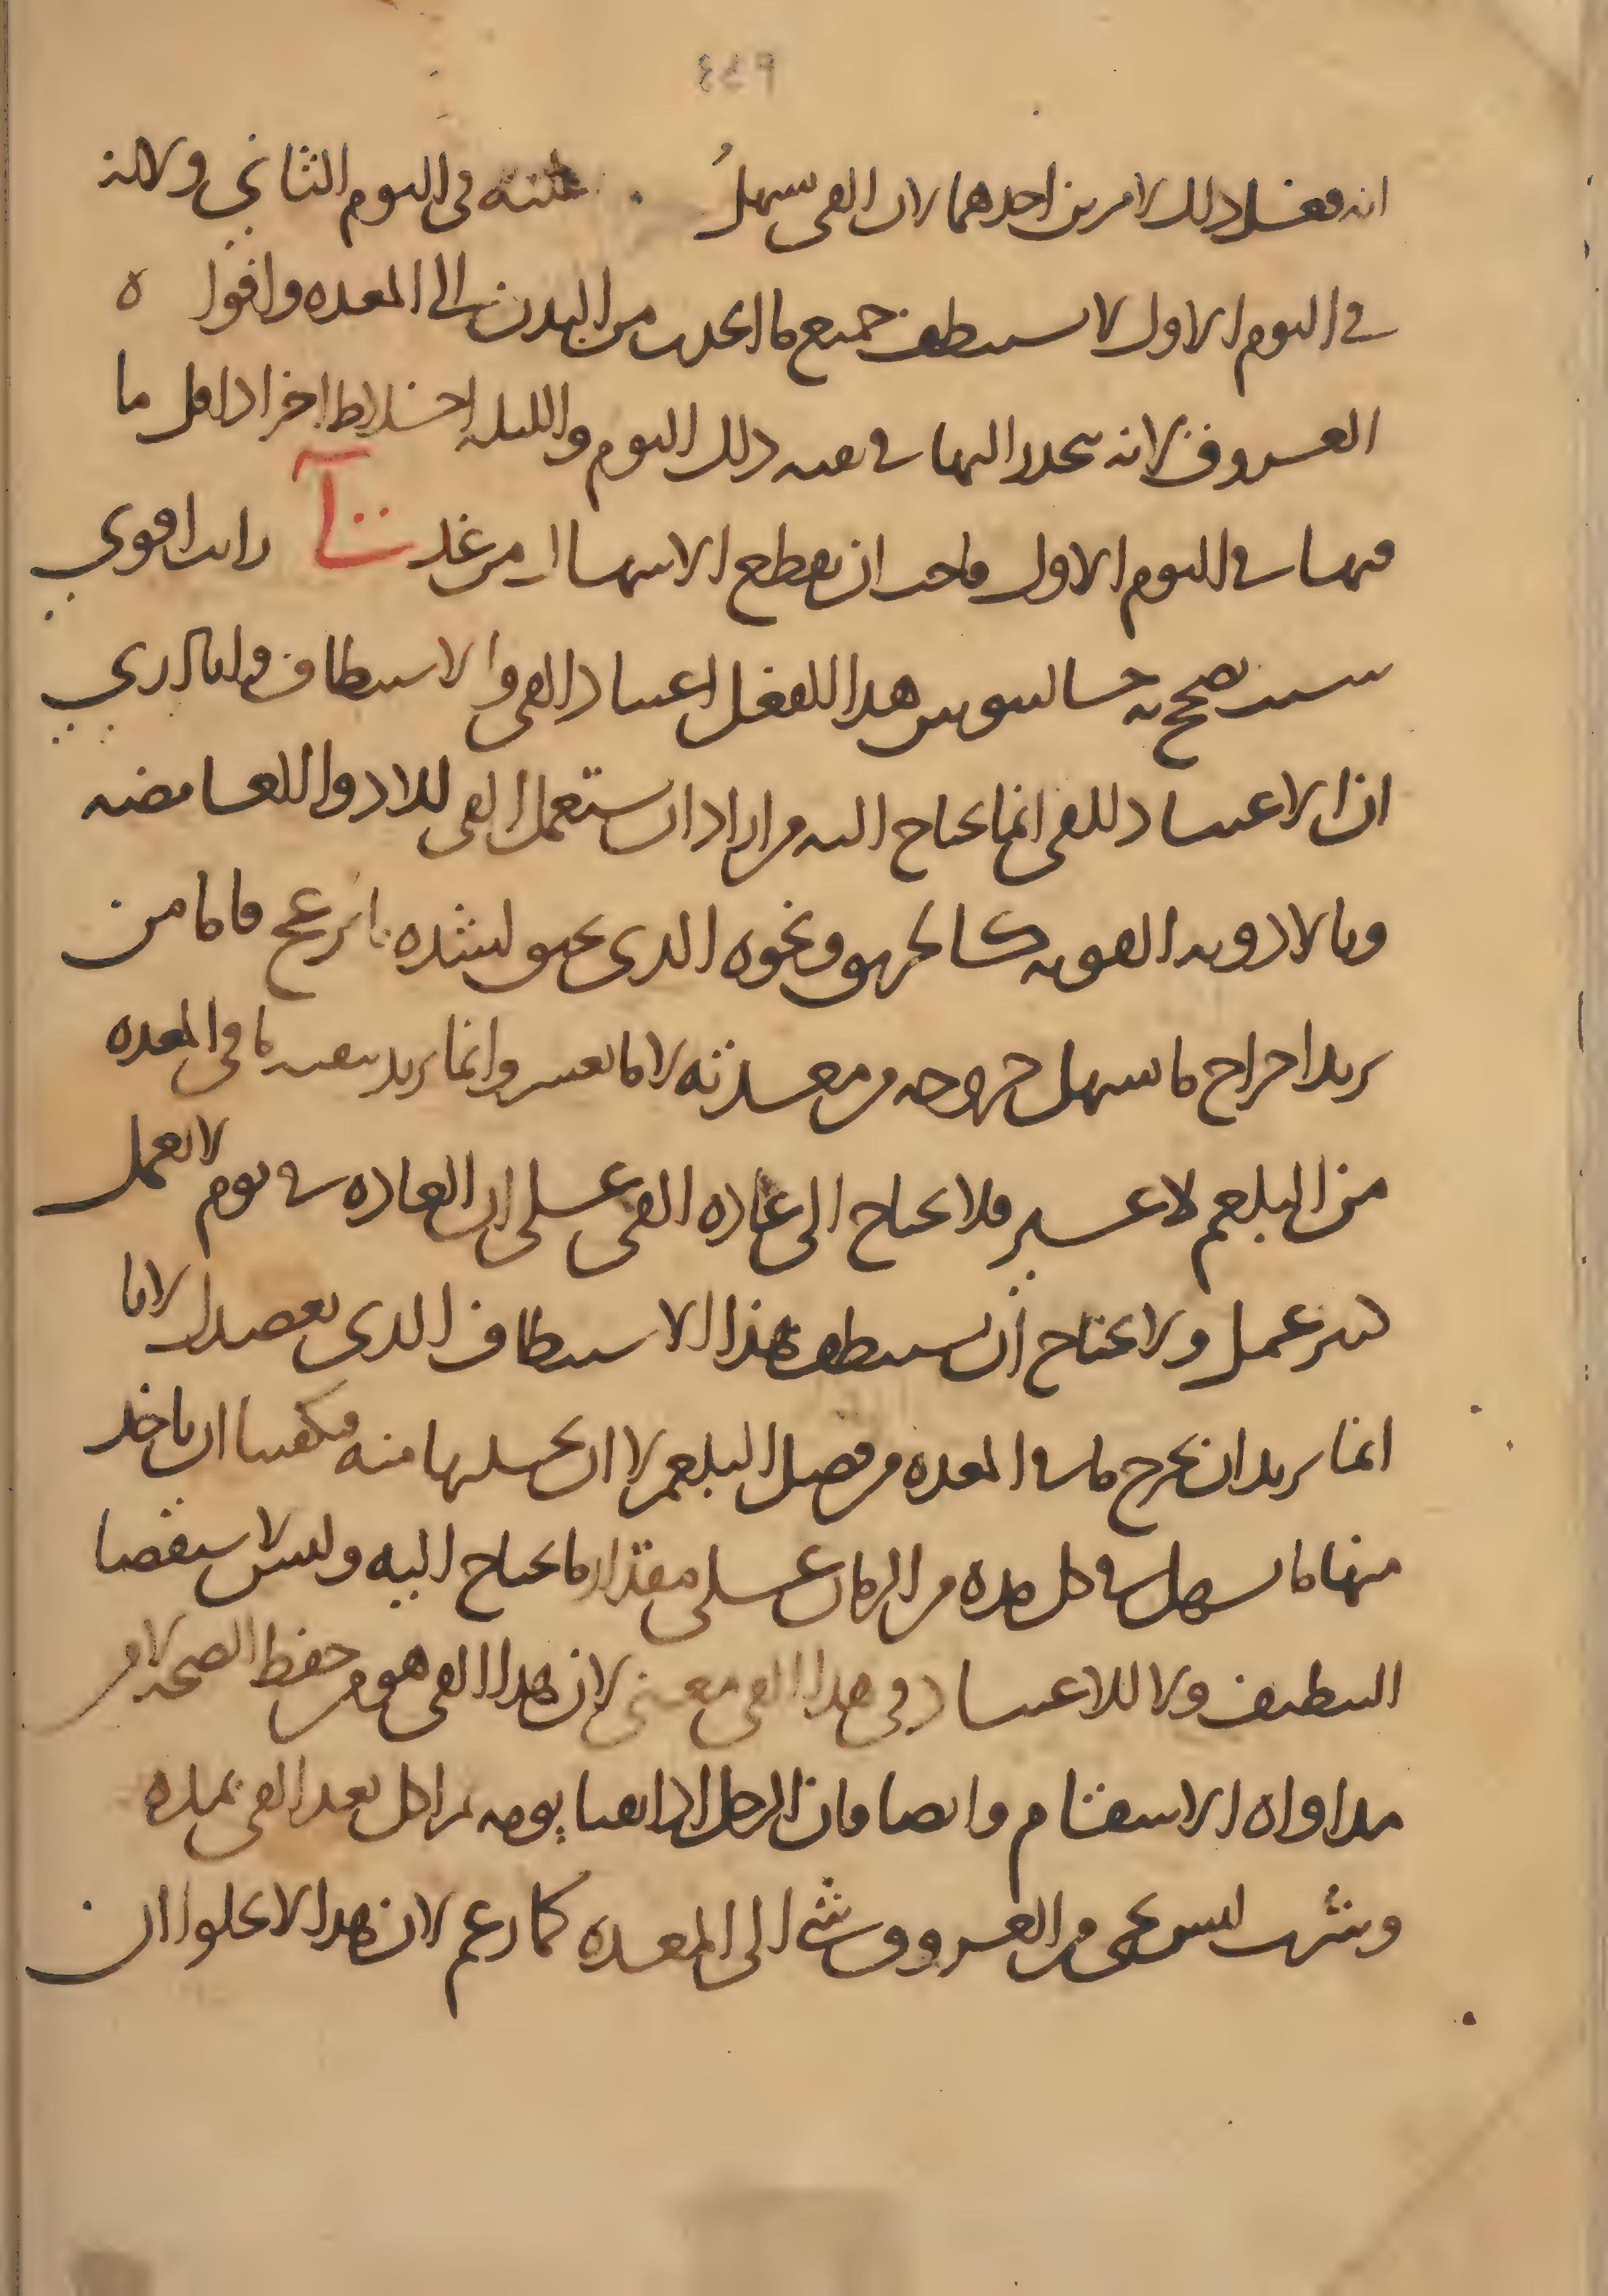 ٤٤٩
انه فعل ذلك لامرين احدهما لان القى سهل عليه فى اليوم الثاني ولانه
في اليوم الاول لا يستنظف جميع ما انجذب من البدن الى المعده وافوا ه
العروق لانه ينحدر اليها فى بقيه ذلك اليوم والليله اخلاط اخر اذ اقل ما
فيها فى اليوم الاول فاحب ان يقطع الاسهال من غد رايت اقوي
سبب يصحح به جالينوس هذا الفعل اعتياد القى والاستنظاف وليث ادري
ان الاعتياد للقى انما يحتاج اليه من اراد ان يستعمل القى للادوا الغامضه
وبالادويه القويه كالخربق ونحوه الذى يخنق لشده ما يزعج فاما من
يريد اخراج ما سهل خروجه من معدته لا ما يعسر وانما يريد تنقيه ما فى المعده
من البلغم لا غير فلا يحتاج الى عاده القى على ان العاده فى يوم لا تعمل
كبير عمل ولا يحتاج ان يستنظف هذا الاستنظاف الذى يقصد لانا
انما يريد ان يخرج ما فى المعده من فضل البلغم لا ان يغسلها منه فيكفينا ان ناخذ
منها ما سهل فى كل مده من الزمان على مقدار ما يحتاج اليه وليس لاستقصا
التنظيف ولا للاعتياد فى هذا القى معنى لان هذا القى هو من حفظ الصحه لا من
مداواه الاسقام وايضا فان الرجل اذا تقيا يومه ثم اكل بعد القى بمده
وشرب ليس يجى من العروق شي الى المعده كما زعم لان هذا لا يخلوا ان